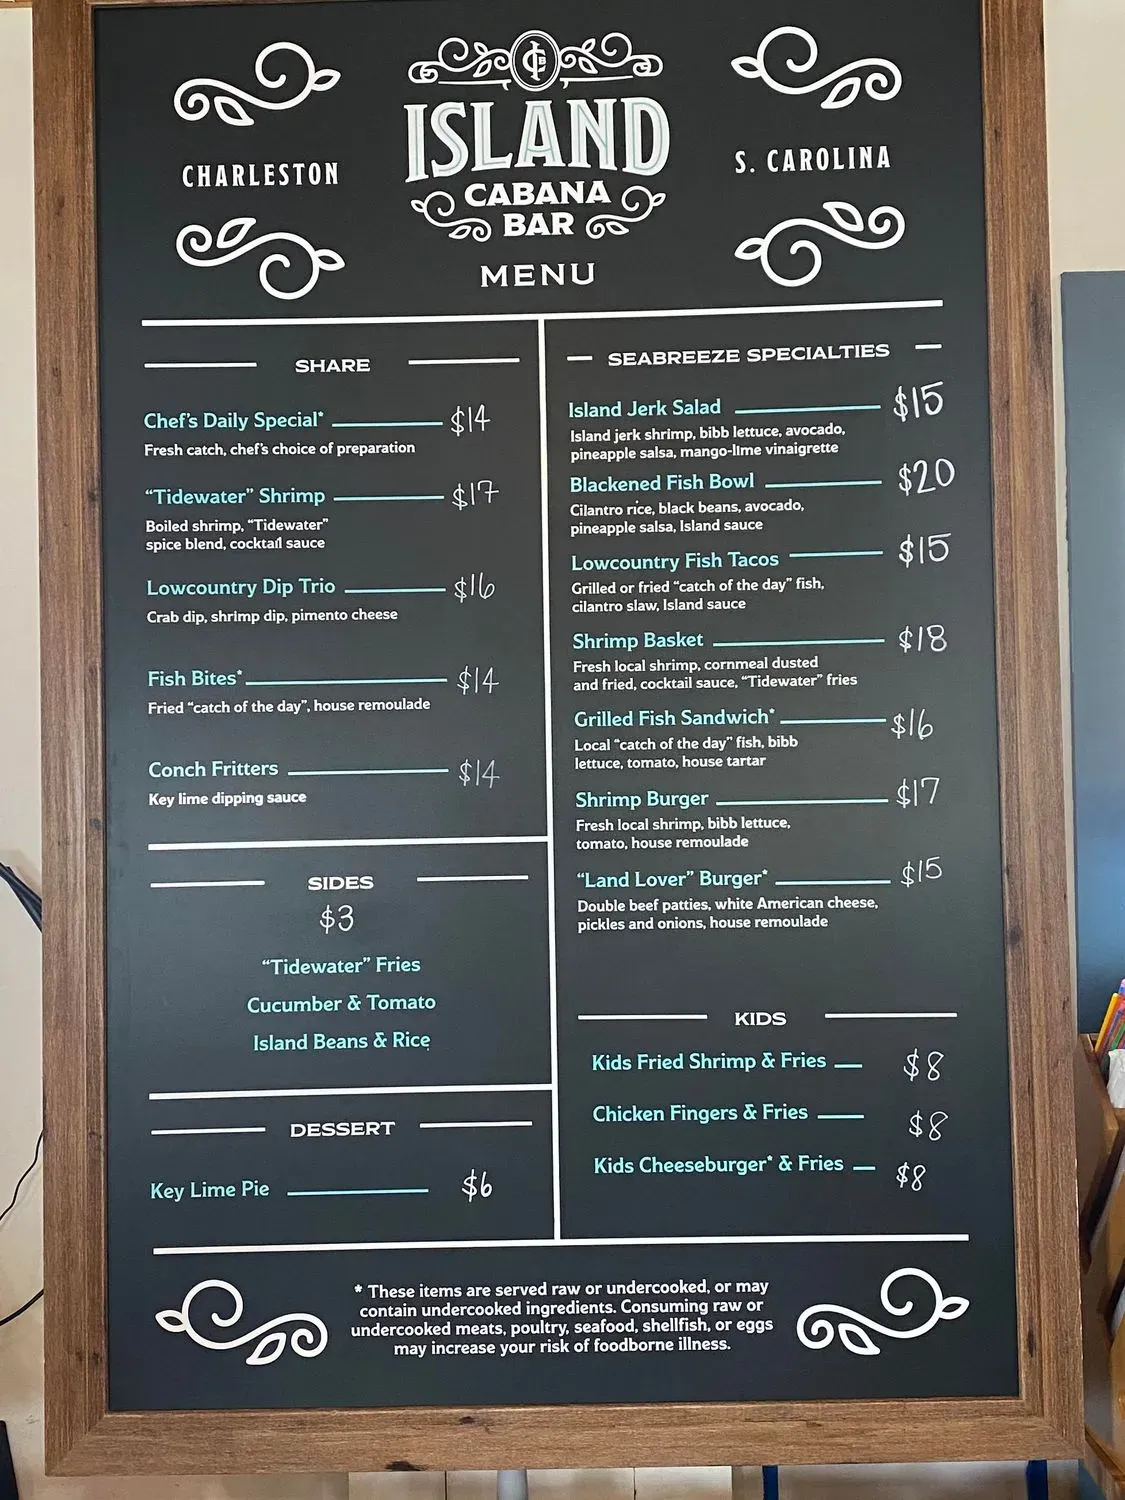 CHARLESTON
ICB
ISLAND
CABANA
BAR
MENU
S. CAROLINA
SHARE
Chef's Daily Special* $14
Fresh catch, chef's choice of preparation
"Tidewater" Shrimp $17
Boiled shrimp, "Tidewater"
spice blend, cocktail sauce
Lowcountry Dip Trio $16
Crab dip, shrimp dip, pimento cheese
Fish Bites* $14
Fried "catch of the day", house remoulade
Conch Fritters $14
Key lime dipping sauce
SIDES
$3
"Tidewater" Fries
Cucumber & Tomato
Island Beans & Rice
DESSERT
Key Lime Pie $6
SEABREEZE SPECIALTIES
Island Jerk Salad $15
Island jerk shrimp, bibb lettuce, avocado,
pineapple salsa, mango-lime vinaigrette
Blackened Fish Bowl $20
Cilantro rice, black beans, avocado,
pineapple salsa, Island sauce
Lowcountry Fish Tacos $15
Grilled or fried "catch of the day" fish,
cilantro slaw, Island sauce
Shrimp Basket $18
Fresh local shrimp, cornmeal dusted
and fried, cocktail sauce, "Tidewater" fries
Grilled Fish Sandwich* $16
Local "catch of the day" fish, bibb
lettuce, tomato, house tartar
Shrimp Burger $17
Fresh local shrimp, bibb lettuce,
tomato, house remoulade
"Land Lover" Burger* $15
Double beef patties, white American cheese,
pickles and onions, house remoulade
KIDS
Kids Fried Shrimp & Fries $8
Chicken Fingers & Fries $8
Kids Cheeseburger* & Fries $8
* These items are served raw or undercooked, or may
contain undercooked ingredients. Consuming raw or
undercooked meats, poultry, seafood, shellfish, or eggs
may increase your risk of foodborne illness.